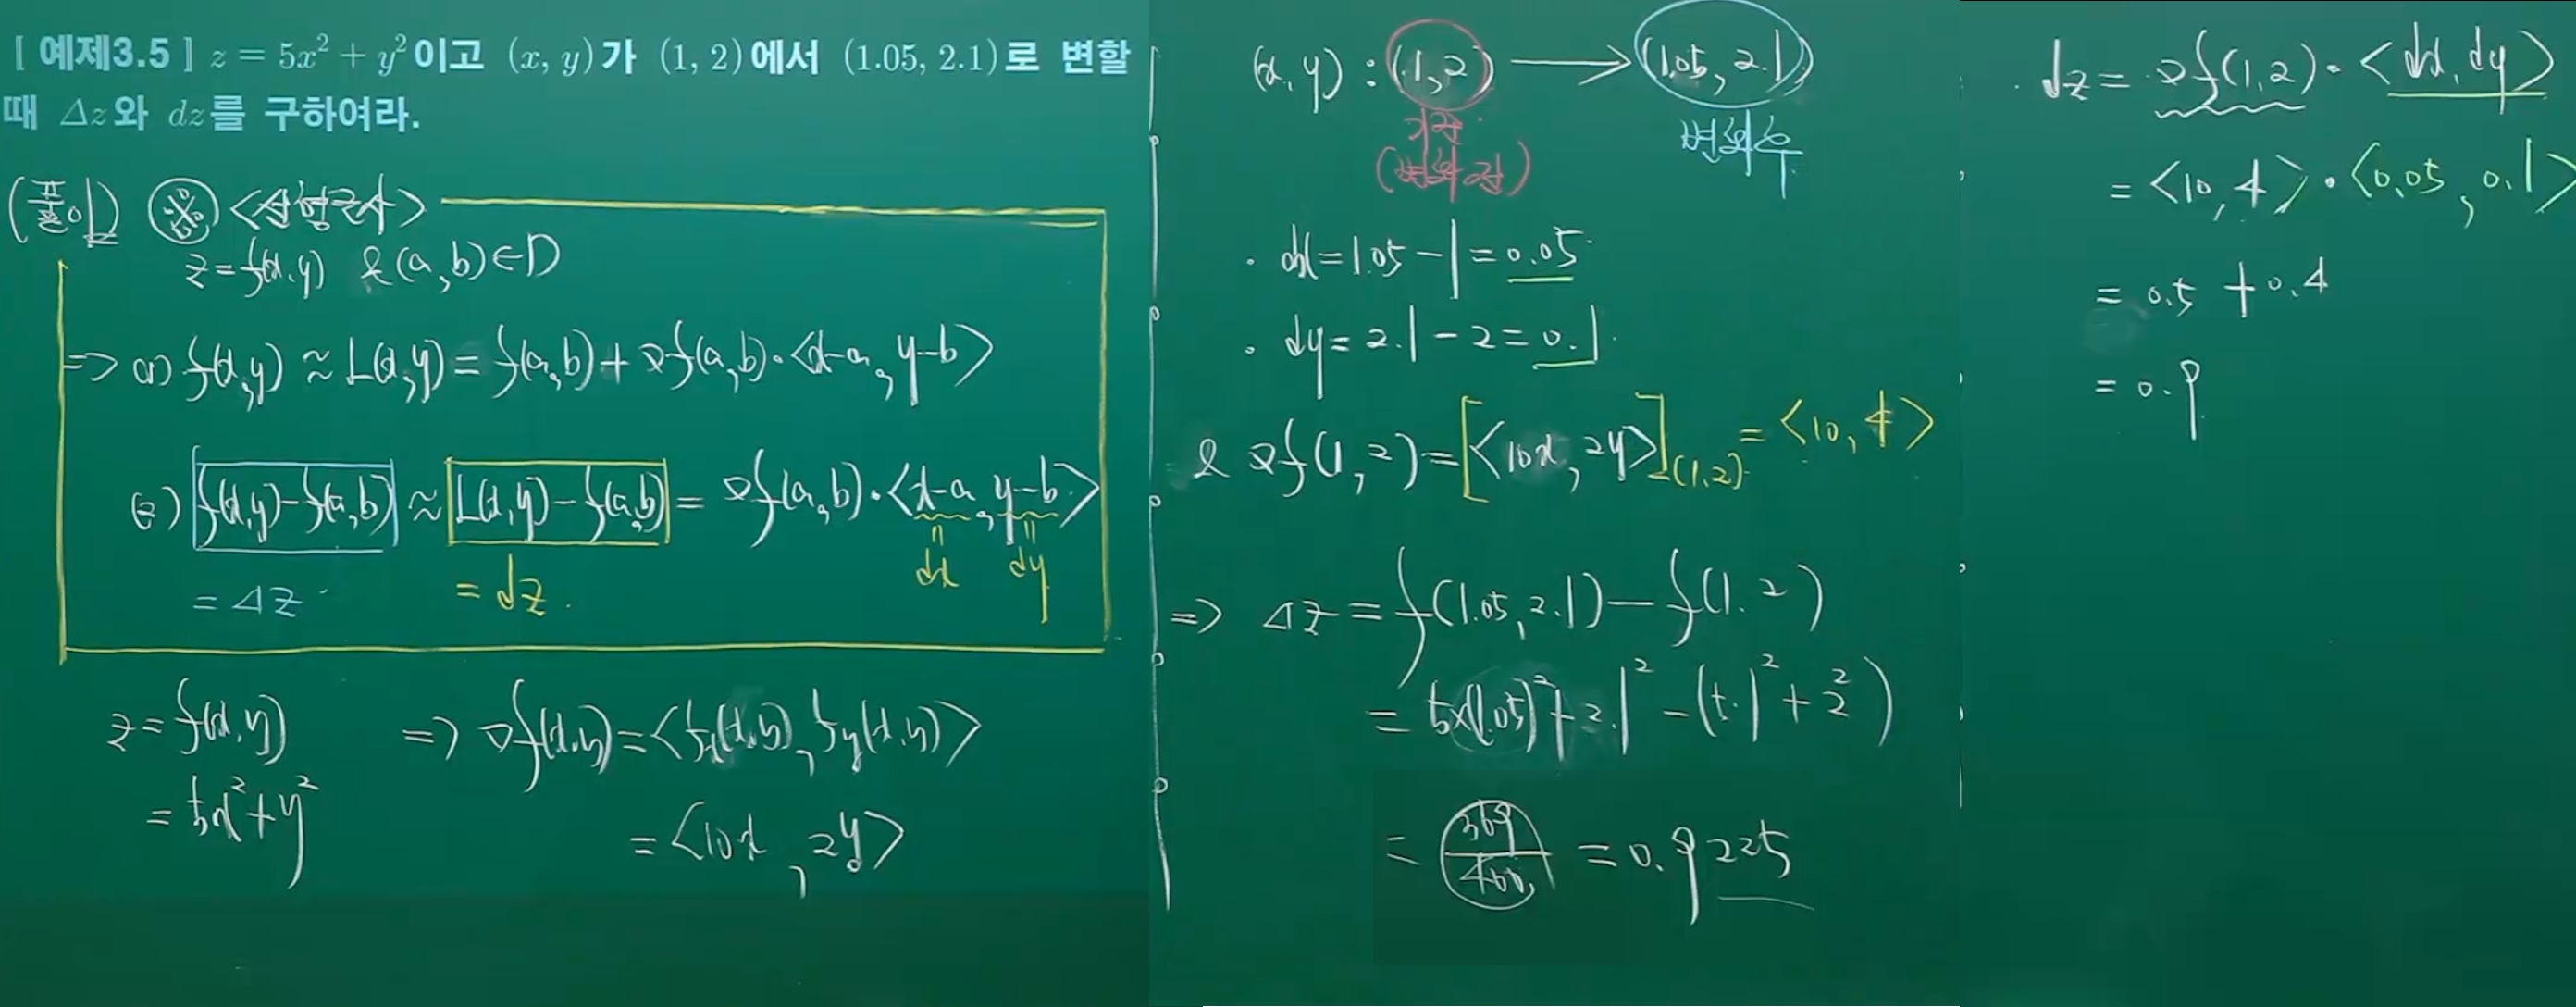 [ 예제3.5 ] z = 5x² + y² 이고 (x, y)가 (1, 2)에서 (1.05, 2.1)로 변할
때 Δz와 dz를 구하여라.
(풀이) ※ <선형근사>
z = f(x, y) & (a, b) ∈ D
=> (1) f(x, y) ≈ L(x, y) = f(a, b) + ∇f(a, b) · <x-a, y-b>
(2) f(x, y) - f(a, b) ≈ L(x, y) - f(a, b) = ∇f(a, b) · <x-a, y-b>
= Δz = dz. = dx = dy
z = f(x, y) => ∇f(x, y) = <fx(x, y), fy(x, y)>
= 5x² + y² = <10x, 2y>
(x, y) : (1, 2) → (1.05, 2.1)
변화후
· dx = 1.05 - 1 = 0.05
· dy = 2.1 - 2 = 0.1
& ∇f(1, 2) = [<10x, 2y>](1, 2) = <10, 4>
=> Δz = f(1.05, 2.1) - f(1, 2)
= 5×(1.05)² + 2.1² - (5·1² + 2²)
= 369/400 = 0.9225
· dz = ∇f(1, 2) · <dx, dy>
= <10, 4> · <0.05, 0.1>
= 0.5 + 0.4
= 0.9